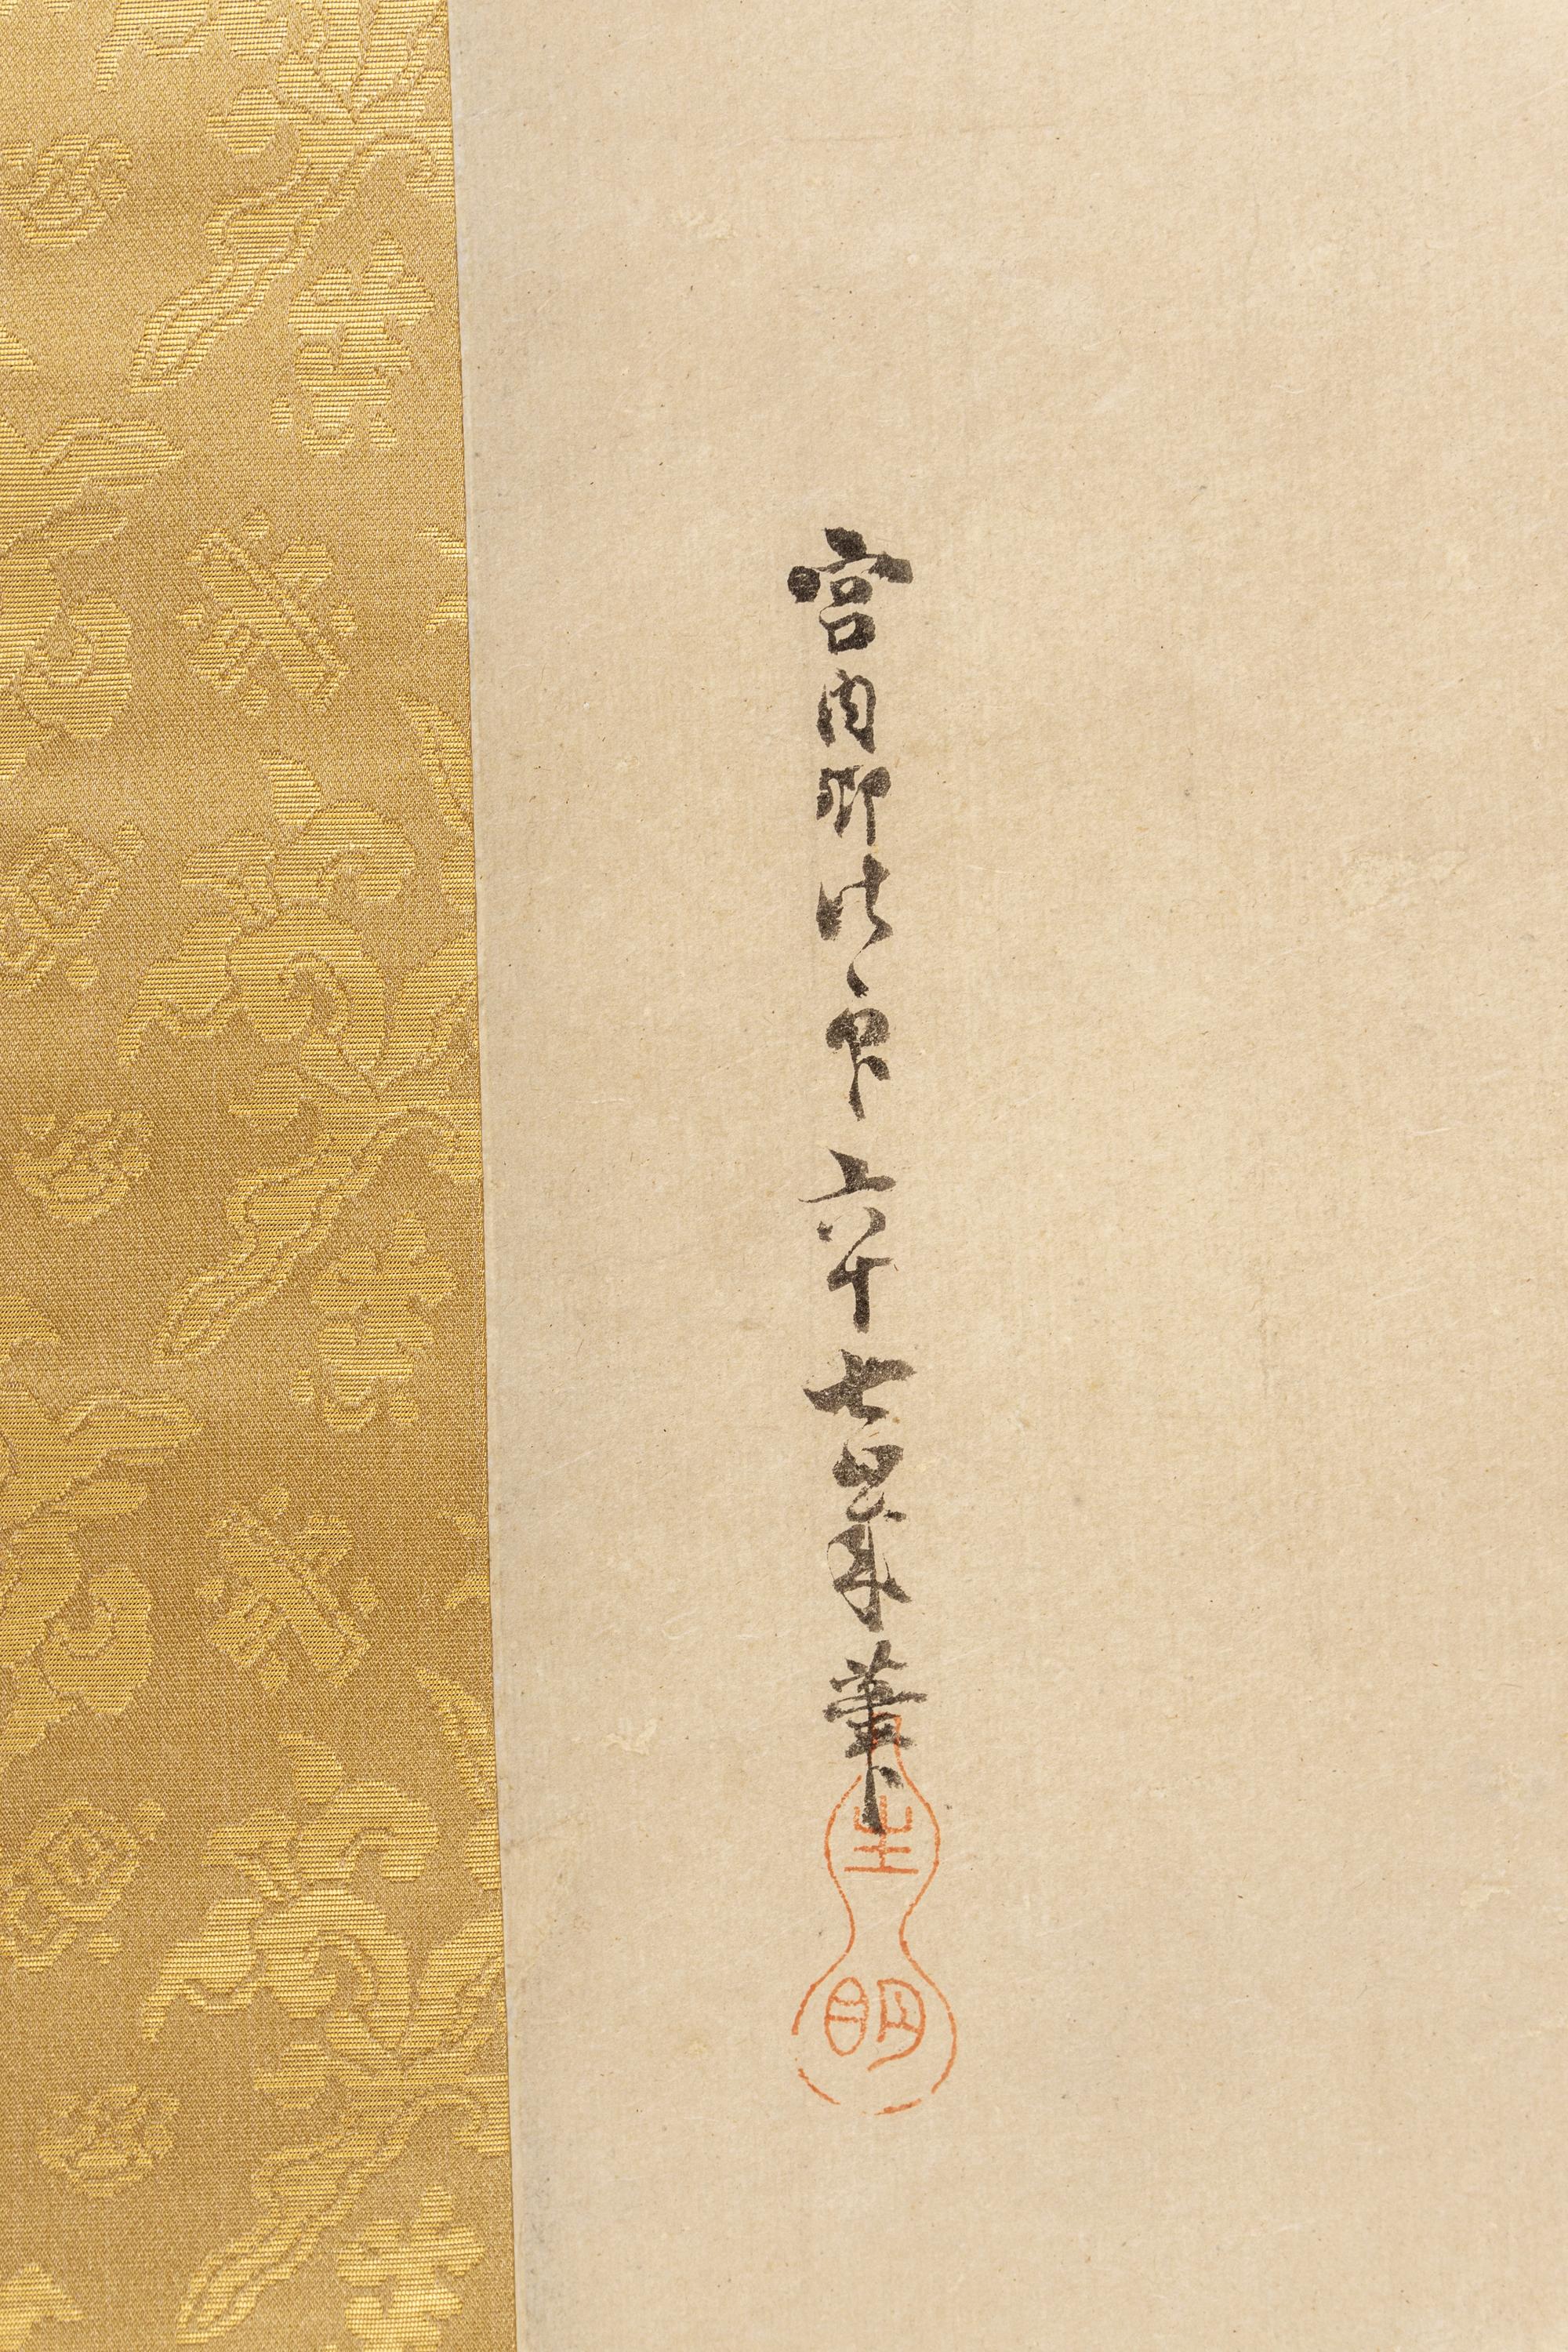 宮内卿法印六十七歳筆
生明